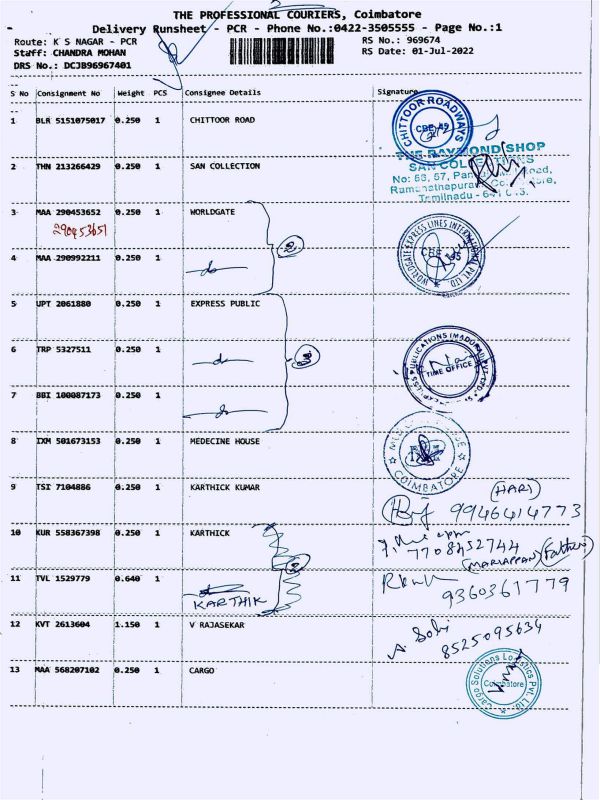 2
THE PROFESSIONAL COURIERS, Coimbatore
Delivery Runsheet - PCR - Phone No.:0422-3505555 - Page No.:1
Route: K S NAGAR - PCR RS No.: 969674
Staff: CHANDRA MOHAN RS Date: 01-Jul-2022
DRS No.: DCJB96967401
S No Consignment No Weight PCS Consignee Details Signature
1 BLR 5151075017 0.250 1 CHITTOOR ROAD
CHITTOOR ROADWAYS
CBE
THE RAYMOND SHOP
2 THN 213266429 0.250 1 SAN COLLECTION
SAN COLLECTIONS
No: 56, 57,
Ramanathapuram,
Tamilnadu - 641
3 MAA 290453652 0.250 1 WORLDGATE
290453651
WORLDGATE EXPRESS LINES INTERNATIONAL PVT LTD
CBE
4 MAA 290992211 0.250 1 do
5 UPT 2061880 0.250 1 EXPRESS PUBLIC
PUBLICATIONS (MADURAI) PVT. LTD.
TIME OFFICE
6 TRP 5327511 0.250 1 do
7 BBI 100087173 0.250 1 do
8 IXM 501673153 0.250 1 MEDECINE HOUSE
COIMBATORE
9 TSI 7104886 0.250 1 KARTHICK KUMAR
(HARI)
9946414773
10 KUR 558367398 0.250 1 KARTHICK
7708452744
(MARIAPPAN) (Father)
11 TVL 1529779 0.640 1
KARTHIK
9360361779
12 KVT 2613604 1.150 1 V RAJASEKAR
8525095634
13 MAA 568207102 0.250 1 CARGO
Cargo Solutions Logistics Pvt. Ltd.
Coimbatore